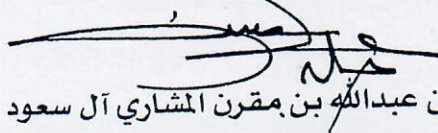 ن عبدالله بن مقرن المشاري آل سعود